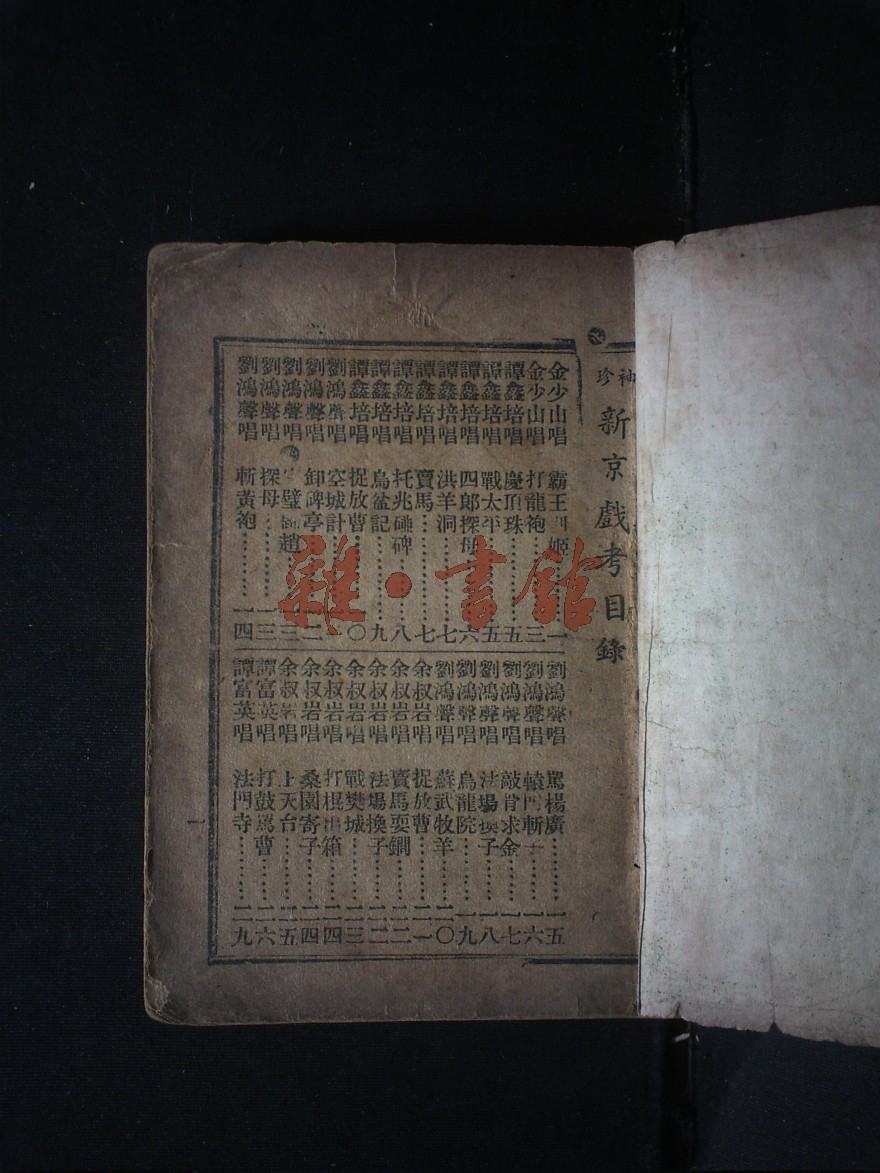 袖珍
新京戲考目錄
金少山唱 霸王 姬………一
金少山唱 打龍袍………三
譚鑫培唱 慶頂珠………五
譚鑫培唱 戰太平………五
譚鑫培唱 四郎探母………六
譚鑫培唱 洪羊洞………七
譚鑫培唱 賣馬………七
譚鑫培唱 托兆碰碑………八
譚鑫培唱 烏盆記………九
譚鑫培唱 捉放曹………一〇
劉鴻聲唱 空城計………一
劉鴻聲唱 卸碑亭………一二
劉鴻聲唱 璧 趙………一三
劉鴻聲唱 探母………一三
劉鴻聲唱 斬黃袍………一四
劉鴻聲唱 罵楊廣………一五
劉鴻聲唱 轅門斬子………一六
劉鴻聲唱 敲骨求金………一七
劉鴻聲唱 法場換子………一八
劉鴻聲唱 烏龍院………一九
劉鴻聲唱 蘇武牧羊………二〇
余叔岩唱 捉放曹………二一
余叔岩唱 賣馬耍鐧………二二
余叔岩唱 法場換子………二二
余叔岩唱 戰樊城………二三
余叔岩唱 打棍出箱………二四
余叔岩唱 桑園寄子………二四
余叔岩唱 上天台………二五
譚富英唱 打鼓罵曹………二六
譚富英唱 法門寺………二九
一
雜·書館